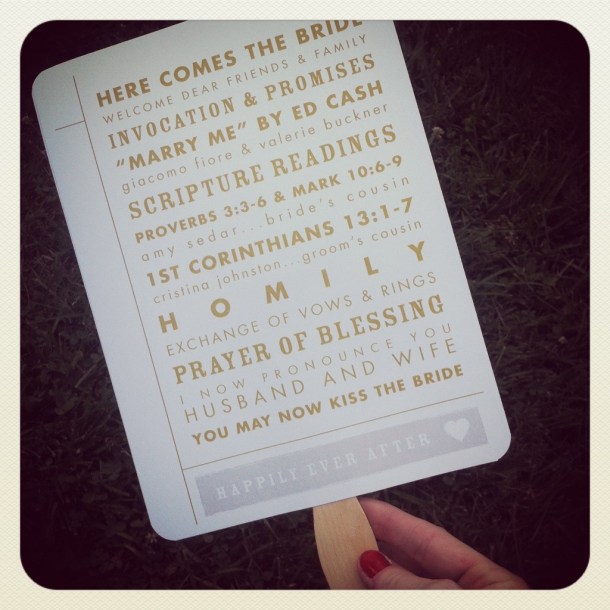 HERE COMES THE BRIDE
WELCOME DEAR FRIENDS & FAMILY
INVOCATION & PROMISES
"MARRY ME" BY ED CASH
giacomo fiore & valerie buckner
SCRIPTURE READINGS
PROVERBS 3:3-6 & MARK 10:6-9
amy sedar...bride's cousin
1ST CORINTHIANS 13:1-7
cristina johnston...groom's cousin
HOMILY
EXCHANGE OF VOWS & RINGS
PRAYER OF BLESSING
I NOW PRONOUNCE YOU
HUSBAND AND WIFE
YOU MAY NOW KISS THE BRIDE
HAPPILY EVER AFTER